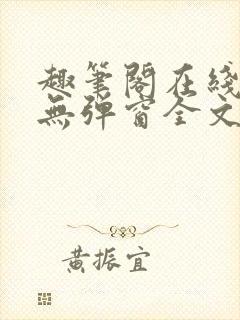 趣筆閣在綫
無弹窗全文
黄振宜